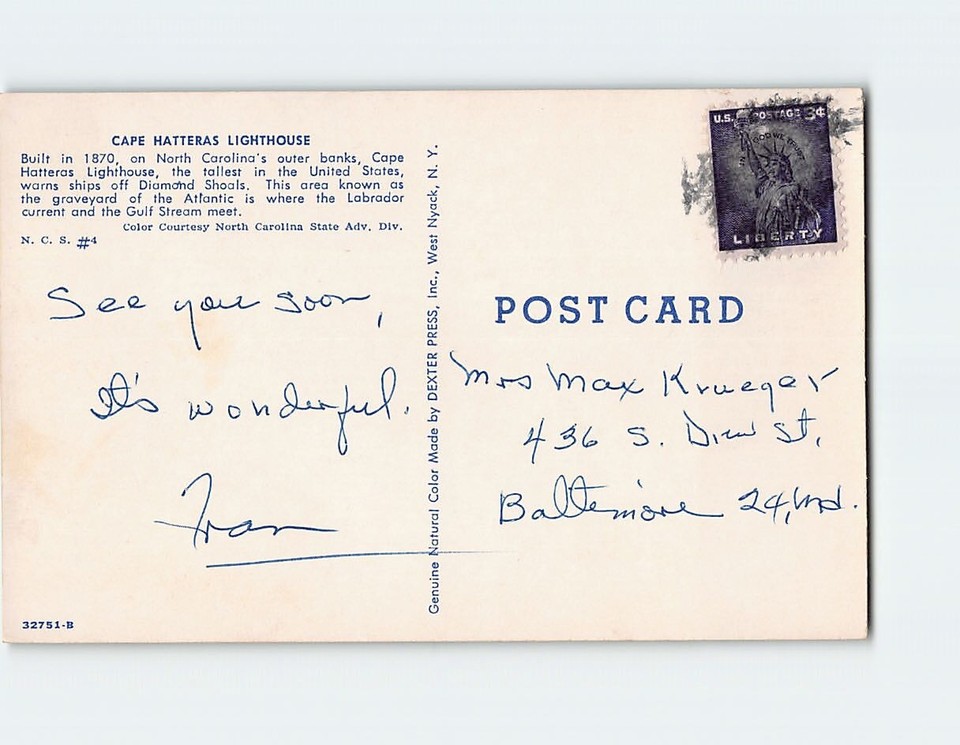 CAPE HATTERAS LIGHTHOUSE
Built in 1870, on North Carolina's outer banks, Cape
Hatteras Lighthouse, the tallest in the United States,
warns ships off Diamond Shoals. This area known as
the graveyard of the Atlantic is where the Labrador
current and the Gulf Stream meet.
Color Courtesy North Carolina State Adv. Div.
N. C. S. #4
See you soon,
It's wonderful.
Fran
32751-B
Genuine Natural Color Made by DEXTER PRESS, Inc., West Nyack, N. Y.
U.S. POSTAGE 3¢
IN GOD WE TRUST
LIBERTY
POST CARD
Mrs Max Krueger
436 S. Drew St,
Baltimore 24, Md.